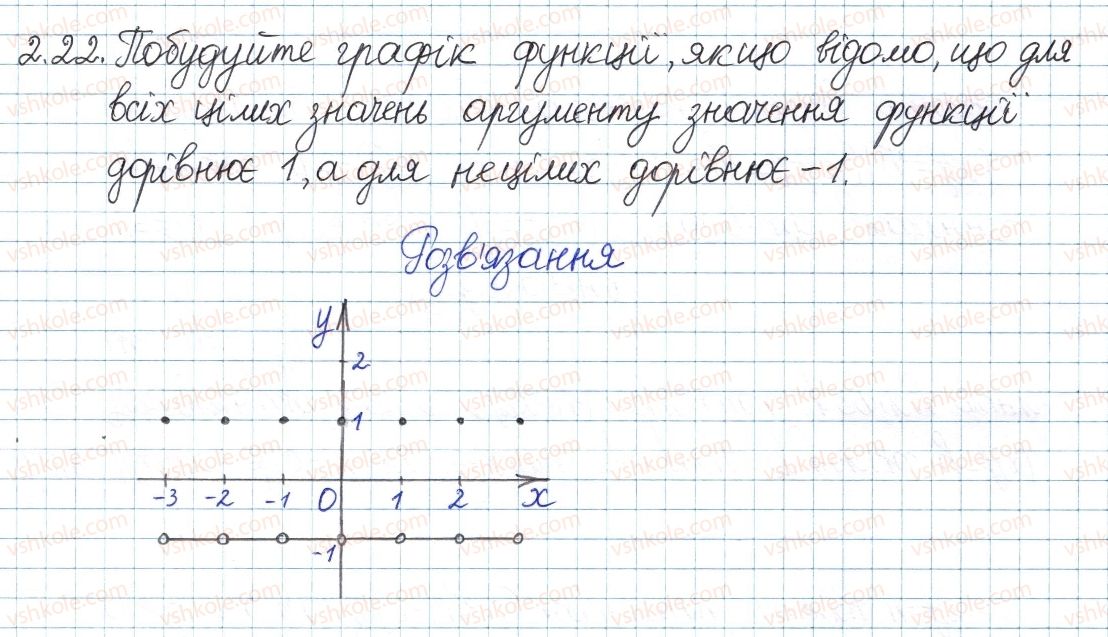 2.22. Побудуйте графік функції, якщо відомо, що для
всіх цілих значень аргументу значення функції
дорівнює 1, а для нецілих дорівнює -1.
Розв'язання
y
2
1
-3 -2 -1 0 1 2 x
-1
vshkole.com